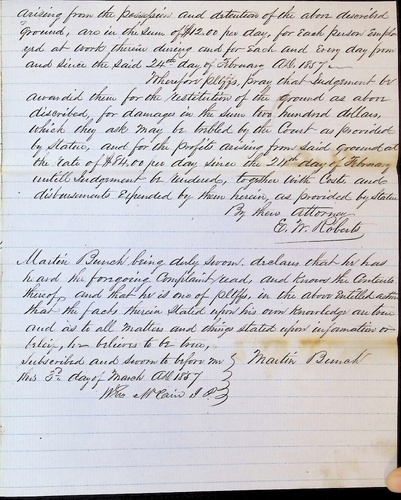 arising from the possession and detention of the above described
Ground, are in the sum of $12.00 per day, for Each person Employ
eyd at work therein during and for Each and Every day from
and since the said 24th day of February AD 1857
Wherefore plffs, pray that Judgement be
awarded them for the restitution of the ground as above
discribed, for damages in the sum two hundred dollars,
which they ask may be trebled by the Court as provided
by Statue, and for the profits arising from said ground at
the rate of per day since the day of February
untill Judgement be rendered, together with Costs and
disbursments Expended by them herein, as provided by Statue
By their Attorney
E. W. Roberts
Martin Bunch being duly sworn declares that he has
heard the forgoing Complaint read, and knows the Contents
thereof, and that he is one of plffs, in the above Entitled action
that the facts therein stated upon his own knowledge are true
and as to all matters and things stated upon infamation or
belief, he believes to be true,
Subscribed and sworn to before me } Martin Bunch
this day of March AD 1857 }
McCain J. P. }